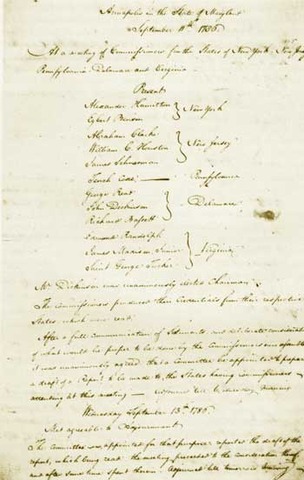 Annapolis in the State of Maryland
September 11th 1786.
At a meeting of Commissioners from the States of New York, New Jersey
Pennsylvania Delaware and Virginia
Present
Alexander Hamilton
Egbert Benson } New York
Abraham Clarke
William C. Houston } New Jersey
James Schureman
Tench Coxe — Pennsylvania
George Read
John Dickinson } Delaware
Richard Bassett
Edmund Randolph
James Madison Junior } Virginia
Saint George Tucker
Mr Dickinson was unanimously elected Chairman.
The Commissioners produced their Credentials from their respective
States which were read.
After a full communication of Sentiments, and deliberate consideration
of what would be proper to be done by the Commissioners now assembled
it was unanimously agreed that a Committee be appointed to prepare
a draft of a Report to be made to the States having Commissioners
attending at this meeting —
Wednesday September 13th 1786.
Met agreeable to Adjournment.
The Committee, appointed for that purpose, reported the draft of the
report, which being read the meeting proceeded to the consideration thereof
and after some time spent therein Adjourned till tomorrow morning